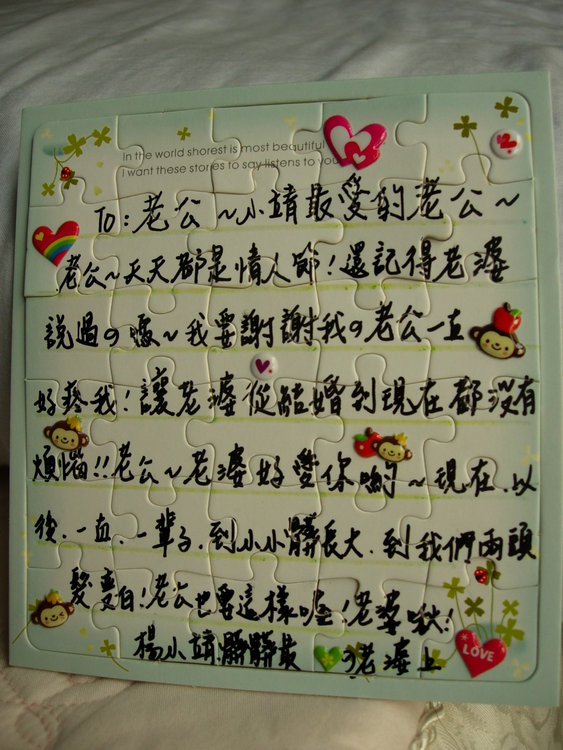 In the world shorest is most beautiful
I want these stories to say listens to you
To:老公~小靖最愛的老公~
老公~天天都是情人節!還記得老婆
說過の嗎~我要謝謝我の老公一直
好疼我!讓老婆從結婚到現在都沒有
煩惱!!老公~老婆好愛你喲~現在.以
後.一直.一輩子.到小小髒長大.到我們兩頭
髮變白!老公也要這樣喔!老婆啾!
楊小靖髒髒最 の老婆上
LOVE